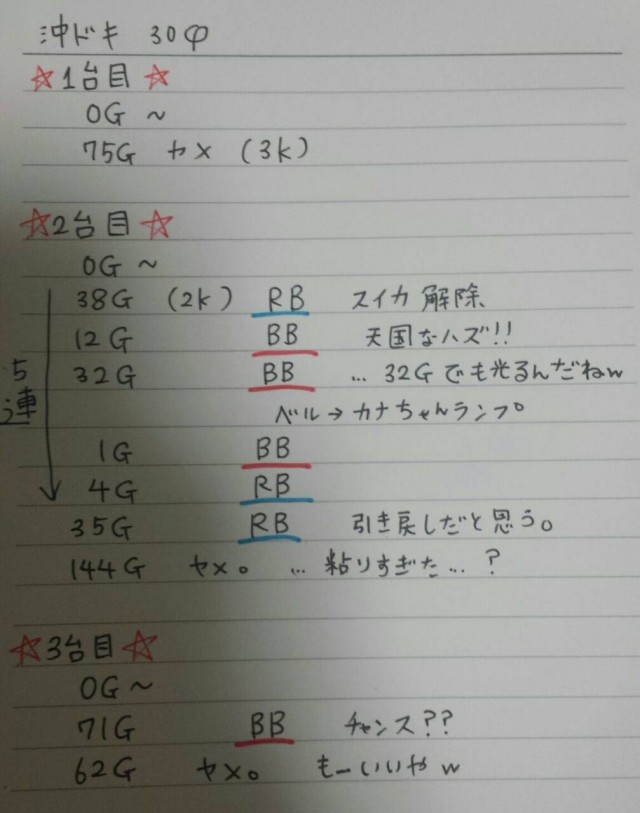 沖ドキ 30Φ
☆1台目☆
0G ~
75G ヤメ (3k)
☆2台目☆
0G ~
38G (2k) RB スイカ 解除
12G BB 天国なハズ!!
32G BB … 32Gでも光るんだねw
ベル→カナちゃんランプ。
1G BB
4G RB
5連
35G RB 引き戻しだと思う。
144G ヤメ。 … 粘りすぎた…?
☆3台目☆
0G ~
71G BB チャンス??
62G ヤメ。 もーいいや w